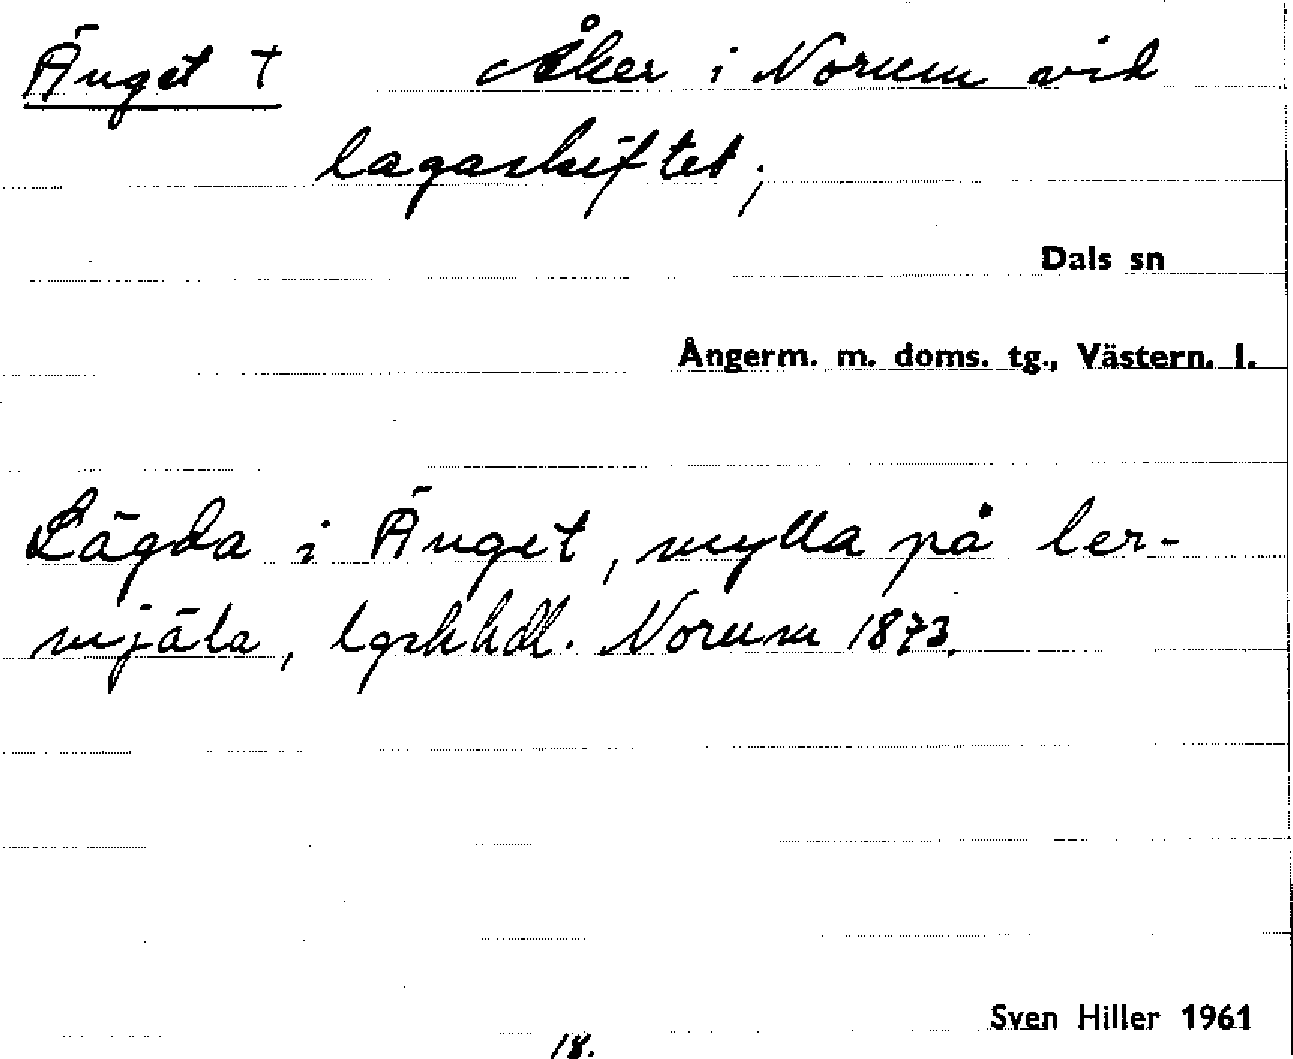 Änget † Åker i Norum vid
lagaskiftet;
Dals sn
Ångerm. m. doms. tg., Västern. l.
Lägda i Änget, mylla på ler-
mjäla, lgskhdl. Norum 1873.
Sven Hiller 1961
18.